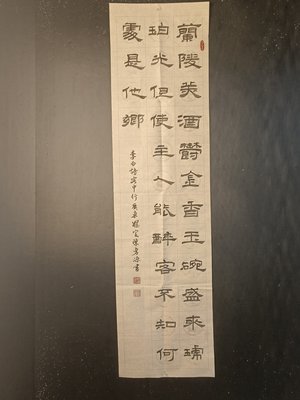 蘭陵美酒鬱金香玉碗盛來琥
珀光但使主人能醉客不知何
處是他鄉
李白詩客中行 書